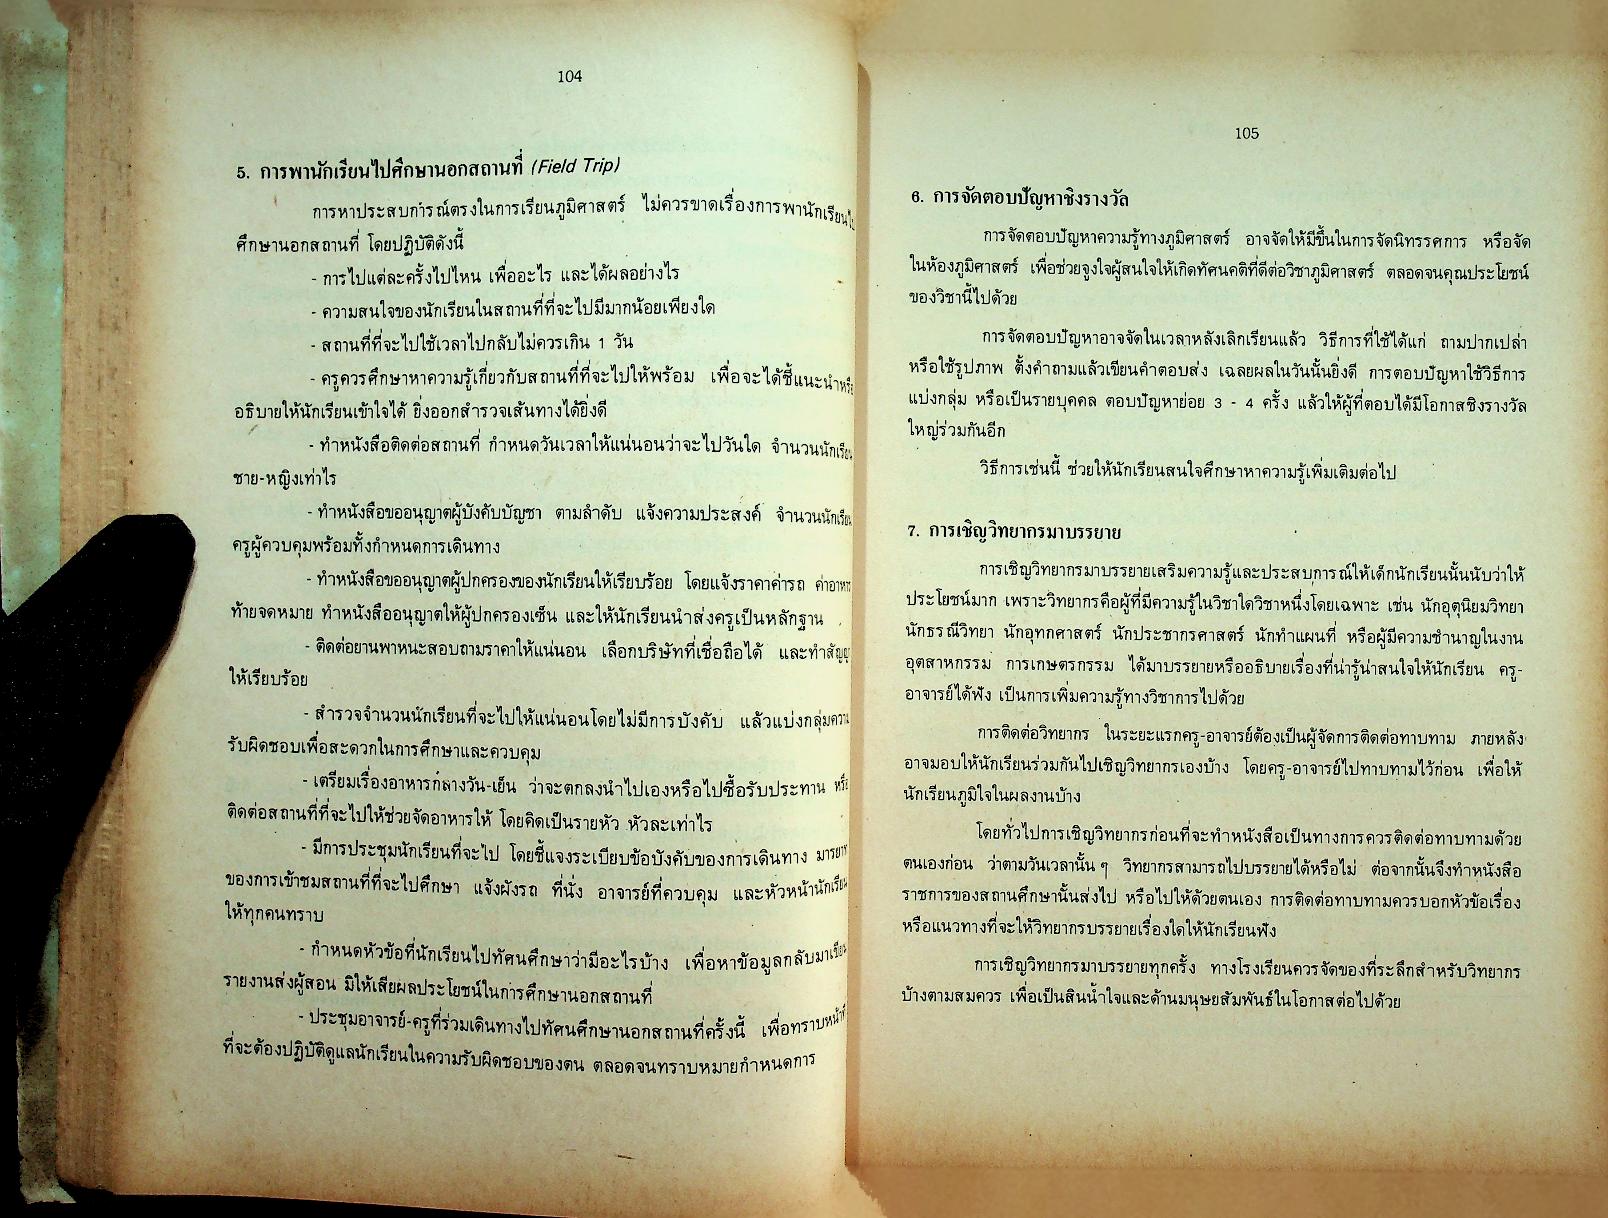 104
5. การพานักเรียนไปศึกษานอกสถานที่ (Field Trip)
การหาประสบการณ์ตรงในการเรียนภูมิศาสตร์ ไม่ควรขาดเรื่องการพานักเรียนไป
ศึกษานอกสถานที่ โดยปฏิบัติดังนี้
- การไปแต่ละครั้งไปไหน เพื่ออะไร และได้ผลอย่างไร
- ความสนใจของนักเรียนในสถานที่ที่จะไปมีมากน้อยเพียงใด
- สถานที่ที่จะไปใช้เวลาไปกลับไม่ควรเกิน 1 วัน
- ครูควรศึกษาหาความรู้เกี่ยวกับสถานที่ที่จะไปให้พร้อม เพื่อจะได้ชี้แนะนำหรือ
อธิบายให้นักเรียนเข้าใจได้ ยิ่งออกสำรวจเส้นทางได้ยิ่งดี
- ทำหนังสือติดต่อสถานที่ กำหนดวันเวลาให้แน่นอนว่าจะไปวันใด จำนวนนักเรียน
ชาย-หญิงเท่าไร
- ทำหนังสือขออนุญาตผู้บังคับบัญชา ตามลำดับ แจ้งความประสงค์ จำนวนนักเรียน
ครูผู้ควบคุมพร้อมทั้งกำหนดการเดินทาง
- ทำหนังสือขออนุญาตผู้ปกครองของนักเรียนให้เรียบร้อย โดยแจ้งราคาค่ารถ ค่าอาหาร
ท้ายจดหมาย ทำหนังสืออนุญาตให้ผู้ปกครองเซ็น และให้นักเรียนนำส่งครูเป็นหลักฐาน
- ติดต่อยานพาหนะสอบถามราคาให้แน่นอน เลือกบริษัทที่เชื่อถือได้ และทำสัญญา
ให้เรียบร้อย
- สำรวจจำนวนนักเรียนที่จะไปให้แน่นอนโดยไม่มีการบังคับ แล้วแบ่งกลุ่มความ
รับผิดชอบเพื่อสะดวกในการศึกษาและควบคุม
- เตรียมเรื่องอาหารกลางวัน-เย็น ว่าจะตกลงนำไปเองหรือไปซื้อรับประทาน หรือ
ติดต่อสถานที่ที่จะไปให้ช่วยจัดอาหารให้ โดยคิดเป็นรายหัว หัวละเท่าไร
- มีการประชุมนักเรียนที่จะไป โดยชี้แจงระเบียบข้อบังคับของการเดินทาง มารยาท
ของการเข้าชมสถานที่ที่จะไปศึกษา แจ้งผังรถ ที่นั่ง อาจารย์ที่ควบคุม และหัวหน้านักเรียน
ให้ทุกคนทราบ
- กำหนดหัวข้อที่นักเรียนไปทัศนศึกษาว่ามีอะไรบ้าง เพื่อหาข้อมูลกลับมาเขียน
รายงานส่งผู้สอน มิให้เสียผลประโยชน์ในการศึกษานอกสถานที่
- ประชุมอาจารย์-ครูที่ร่วมเดินทางไปทัศนศึกษานอกสถานที่ครั้งนี้ เพื่อทราบหน้าที่
ที่จะต้องปฏิบัติดูแลนักเรียนในความรับผิดชอบของตน ตลอดจนทราบหมายกำหนดการ
105
6. การจัดตอบปัญหาชิงรางวัล
การจัดตอบปัญหาความรู้ทางภูมิศาสตร์ อาจจัดให้มีขึ้นในการจัดนิทรรศการ หรือจัด
ในห้องภูมิศาสตร์ เพื่อช่วยจูงใจผู้สนใจให้เกิดทัศนคติที่ดีต่อวิชาภูมิศาสตร์ ตลอดจนคุณประโยชน์
ของวิชานี้ไปด้วย
การจัดตอบปัญหาอาจจัดในเวลาหลังเลิกเรียนแล้ว วิธีการที่ใช้ได้แก่ ถามปากเปล่า
หรือใช้รูปภาพ ตั้งคำถามแล้วเขียนคำตอบส่ง เฉลยผลในวันนั้นยิ่งดี การตอบปัญหาใช้วิธีการ
แบ่งกลุ่ม หรือเป็นรายบุคคล ตอบปัญหาย่อย 3 - 4 ครั้ง แล้วให้ผู้ที่ตอบได้มีโอกาสชิงรางวัล
ใหญ่ร่วมกันอีก
วิธีการเช่นนี้ ช่วยให้นักเรียนสนใจศึกษาหาความรู้เพิ่มเติมต่อไป
7. การเชิญวิทยากรมาบรรยาย
การเชิญวิทยากรมาบรรยายเสริมความรู้และประสบการณ์ให้เด็กนักเรียนนั้นนับว่าให้
ประโยชน์มาก เพราะวิทยากรคือผู้ที่มีความรู้ในวิชาใดวิชาหนึ่งโดยเฉพาะ เช่น นักอุตุนิยมวิทยา
นักธรณีวิทยา นักอุทกศาสตร์ นักประชากรศาสตร์ นักทำแผนที่ หรือผู้มีความชำนาญในงาน
อุตสาหกรรม การเกษตรกรรม ได้มาบรรยายหรืออธิบายเรื่องที่น่ารู้น่าสนใจให้นักเรียน ครู-
อาจารย์ได้ฟัง เป็นการเพิ่มความรู้ทางวิชาการไปด้วย
การติดต่อวิทยากร ในระยะแรกครู-อาจารย์ต้องเป็นผู้จัดการติดต่อทาบทาม ภายหลัง
อาจมอบให้นักเรียนร่วมกันไปเชิญวิทยากรเองบ้าง โดยครู-อาจารย์ไปทาบทามไว้ก่อน เพื่อให้
นักเรียนภูมิใจในผลงานบ้าง
โดยทั่วไปการเชิญวิทยากรก่อนที่จะทำหนังสือเป็นทางการควรติดต่อทาบทามด้วย
ตนเองก่อน ว่าตามวันเวลานั้น ๆ วิทยากรสามารถไปบรรยายได้หรือไม่ ต่อจากนั้นจึงทำหนังสือ
ราชการของสถานศึกษานั้นส่งไป หรือไปให้ด้วยตนเอง การติดต่อทาบทามควรบอกหัวข้อเรื่อง
หรือแนวทางที่จะให้วิทยากรบรรยายเรื่องใดให้นักเรียนฟัง
การเชิญวิทยากรมาบรรยายทุกครั้ง ทางโรงเรียนควรจัดของที่ระลึกสำหรับวิทยากร
บ้างตามสมควร เพื่อเป็นสินน้ำใจและด้านมนุษยสัมพันธ์ในโอกาสต่อไปด้วย